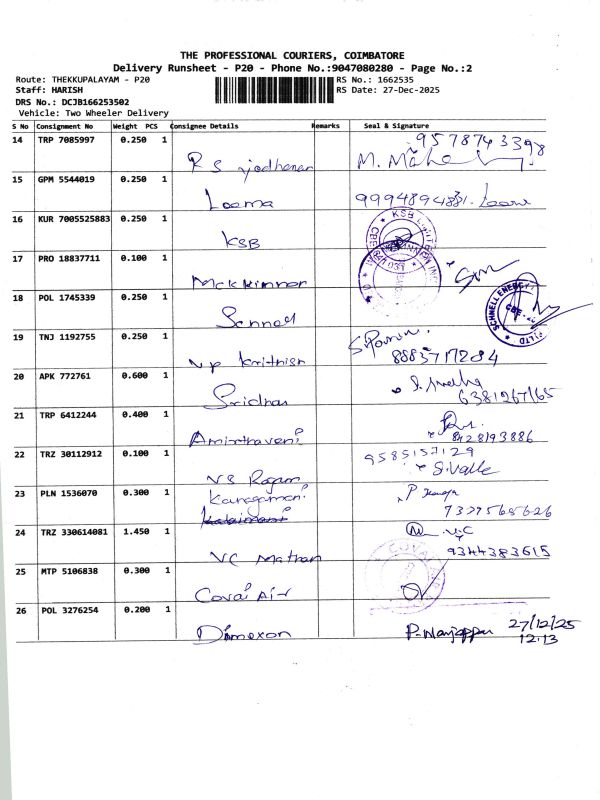 THE PROFESSIONAL COURIERS, COIMBATORE
Delivery Runsheet - P20 - Phone No.:9047080280 - Page No.:2
Route: THEKKUPALAYAM - P20
RS No.: 1662535
Staff: HARISH
RS Date: 27-Dec-2025
DRS No.: DCJB166253502
Vehicle: Two Wheeler Delivery
S No Consignment No Weight PCS Consignee Details Remarks Seal & Signature
14 TRP 7085997 0.250 1 9578743398
R S
15 GPM 5544019 0.250 1
Leema
16 KUR 7005525883 0.250 1
KSB
17 PRO 18837711 0.100 1
18 POL 1745339 0.250 1
SCHNELL ENERGY
19 TNJ 1192755 0.250 1
VP 8883717284
20 APK 772761 0.600 1
Sridhar 6381267165
21 TRP 6412244 0.400 1
Amirthaveni 8428193886
22 TRZ 30112912 0.100 1 9585157129
VS Rajan S.Valle
23 PLN 1536070 0.300 1
Kanagamani
24 TRZ 330614081 1.450 1 V.C
VC 9344383615
25 MTP 5106838 0.300 1
Covai Air
26 POL 3276254 0.200 1 27/12/25
Dimexon 12:13